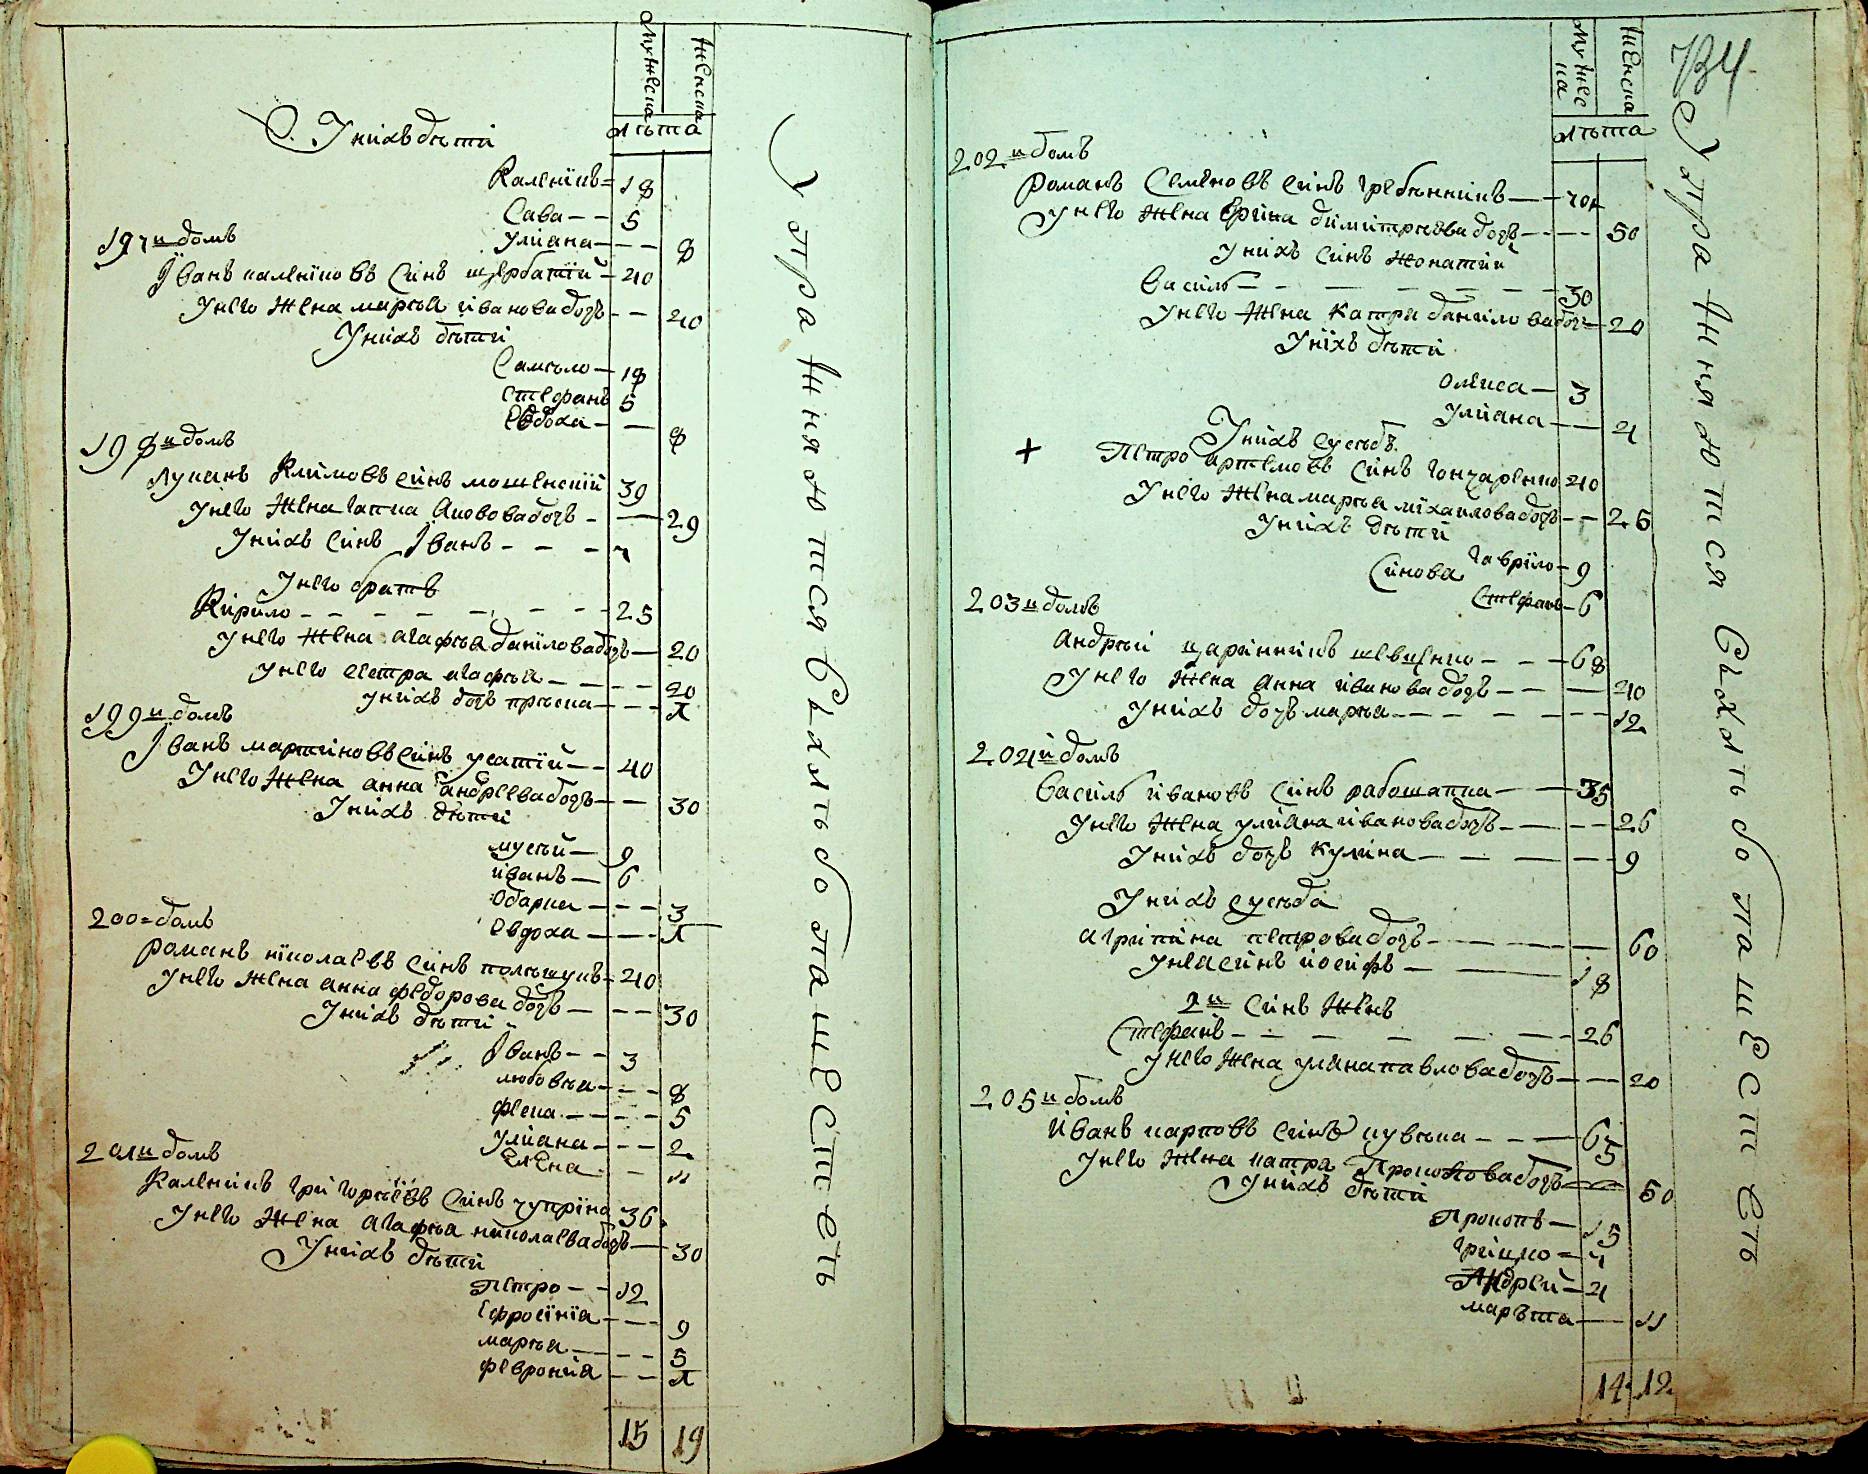 Мужеска
женска
лѣта
У нихъ дѣти
Каленикъ 18
Сава 5
Улияна 8
197й домъ
Иванъ каленїковъ синъ щербатїй 40
У него жена марѣя ивановадочъ 40
У нихъ дѣти
Самоъло 18
стефанъ 5
Евдоха 8
198й домъ
Лукянъ Климовъ синъ мошенскїй 39
У него жена гапка 29
У нихъ синъ Іванъ 7
У него братъ
Кирило 25
У него жена агафѣя данїловадочъ 20
У него сестра агафѣя 20
У нихъ дочъ пріська 1
199й домъ
Іванъ мартиновъ синъ усатїй 40
У него жена анна андреевадочъ 30
У нихъ дѣти
мусѣй 9
иванъ 6
Одарка 3
Евдоха 1
200 домъ
романъ нїколаевъ синъ полѣщукъ 40
У него жена анна федорова дочъ 30
У нихъ дѣти
Іванъ 3
любовъка 8
фенка 5
улїана 2
Елена 11
201й домъ
Каленикъ григориевъ синъ чупрїна 36
У него жена агафѣя николаевадочъ 30
У нихъ дѣти
петро 12
Ефросїнїа 9
марѣя 5
февронїя 1
15 19
734
мужеска
женска
лѣта
202й домъ
романъ Семеновъ синъ гребѣнникъ 70
У него жена Ерїна димитриева дочъ 50
У нихъ синъ жонатий
Василь 30
У него жена Катри данилова дочъ 20
У нихъ дѣти
олекса 3
улияна 4
У нихъ сусѣдъ
+ Петро артемовъ синъ гончаренко 40
У него жена марѣя михаиловадочъ 25
У нихъ дѣти
гаврїло 9
Синова
Стефанъ 6
203й домъ
андрѣй царинникъ шевченко 68
У него жена анна иванова дочъ 40
У нихъ дочъ марѣя 12
204й домъ
Василь ивановъ синъ рабошапка 35
У него жена улияна ивановадочъ 26
У нихъ дочъ кулина 9
У нихъ сусѣда
агрипина петровадочъ 60
У нея синъ иосифъ 18
2й синъ женъ
Стефанъ 26
У него жена уляна павловадочъ 20
205й домъ
Иванъ карповъ синъ кувѣка 65
У него жена катра Прокоповадочъ 50
У нихъ дѣти
Прокопъ 15
грицко 7
Андрей 4
маръта 11
14 12